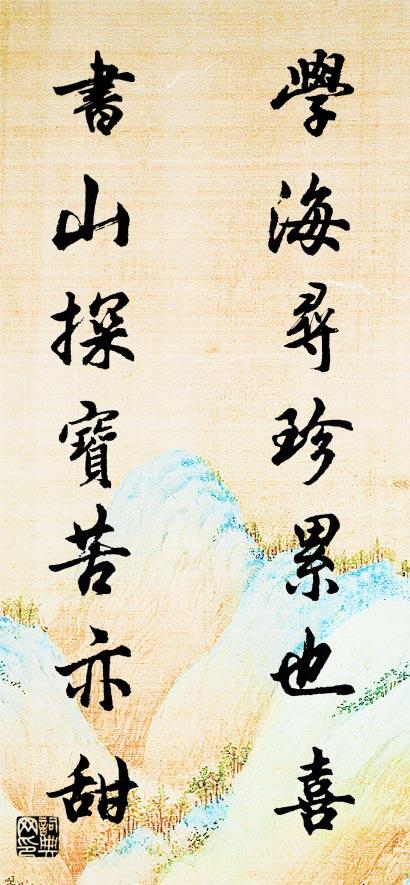 學海尋珍累也喜
書山探寶苦亦甜
詞典網印